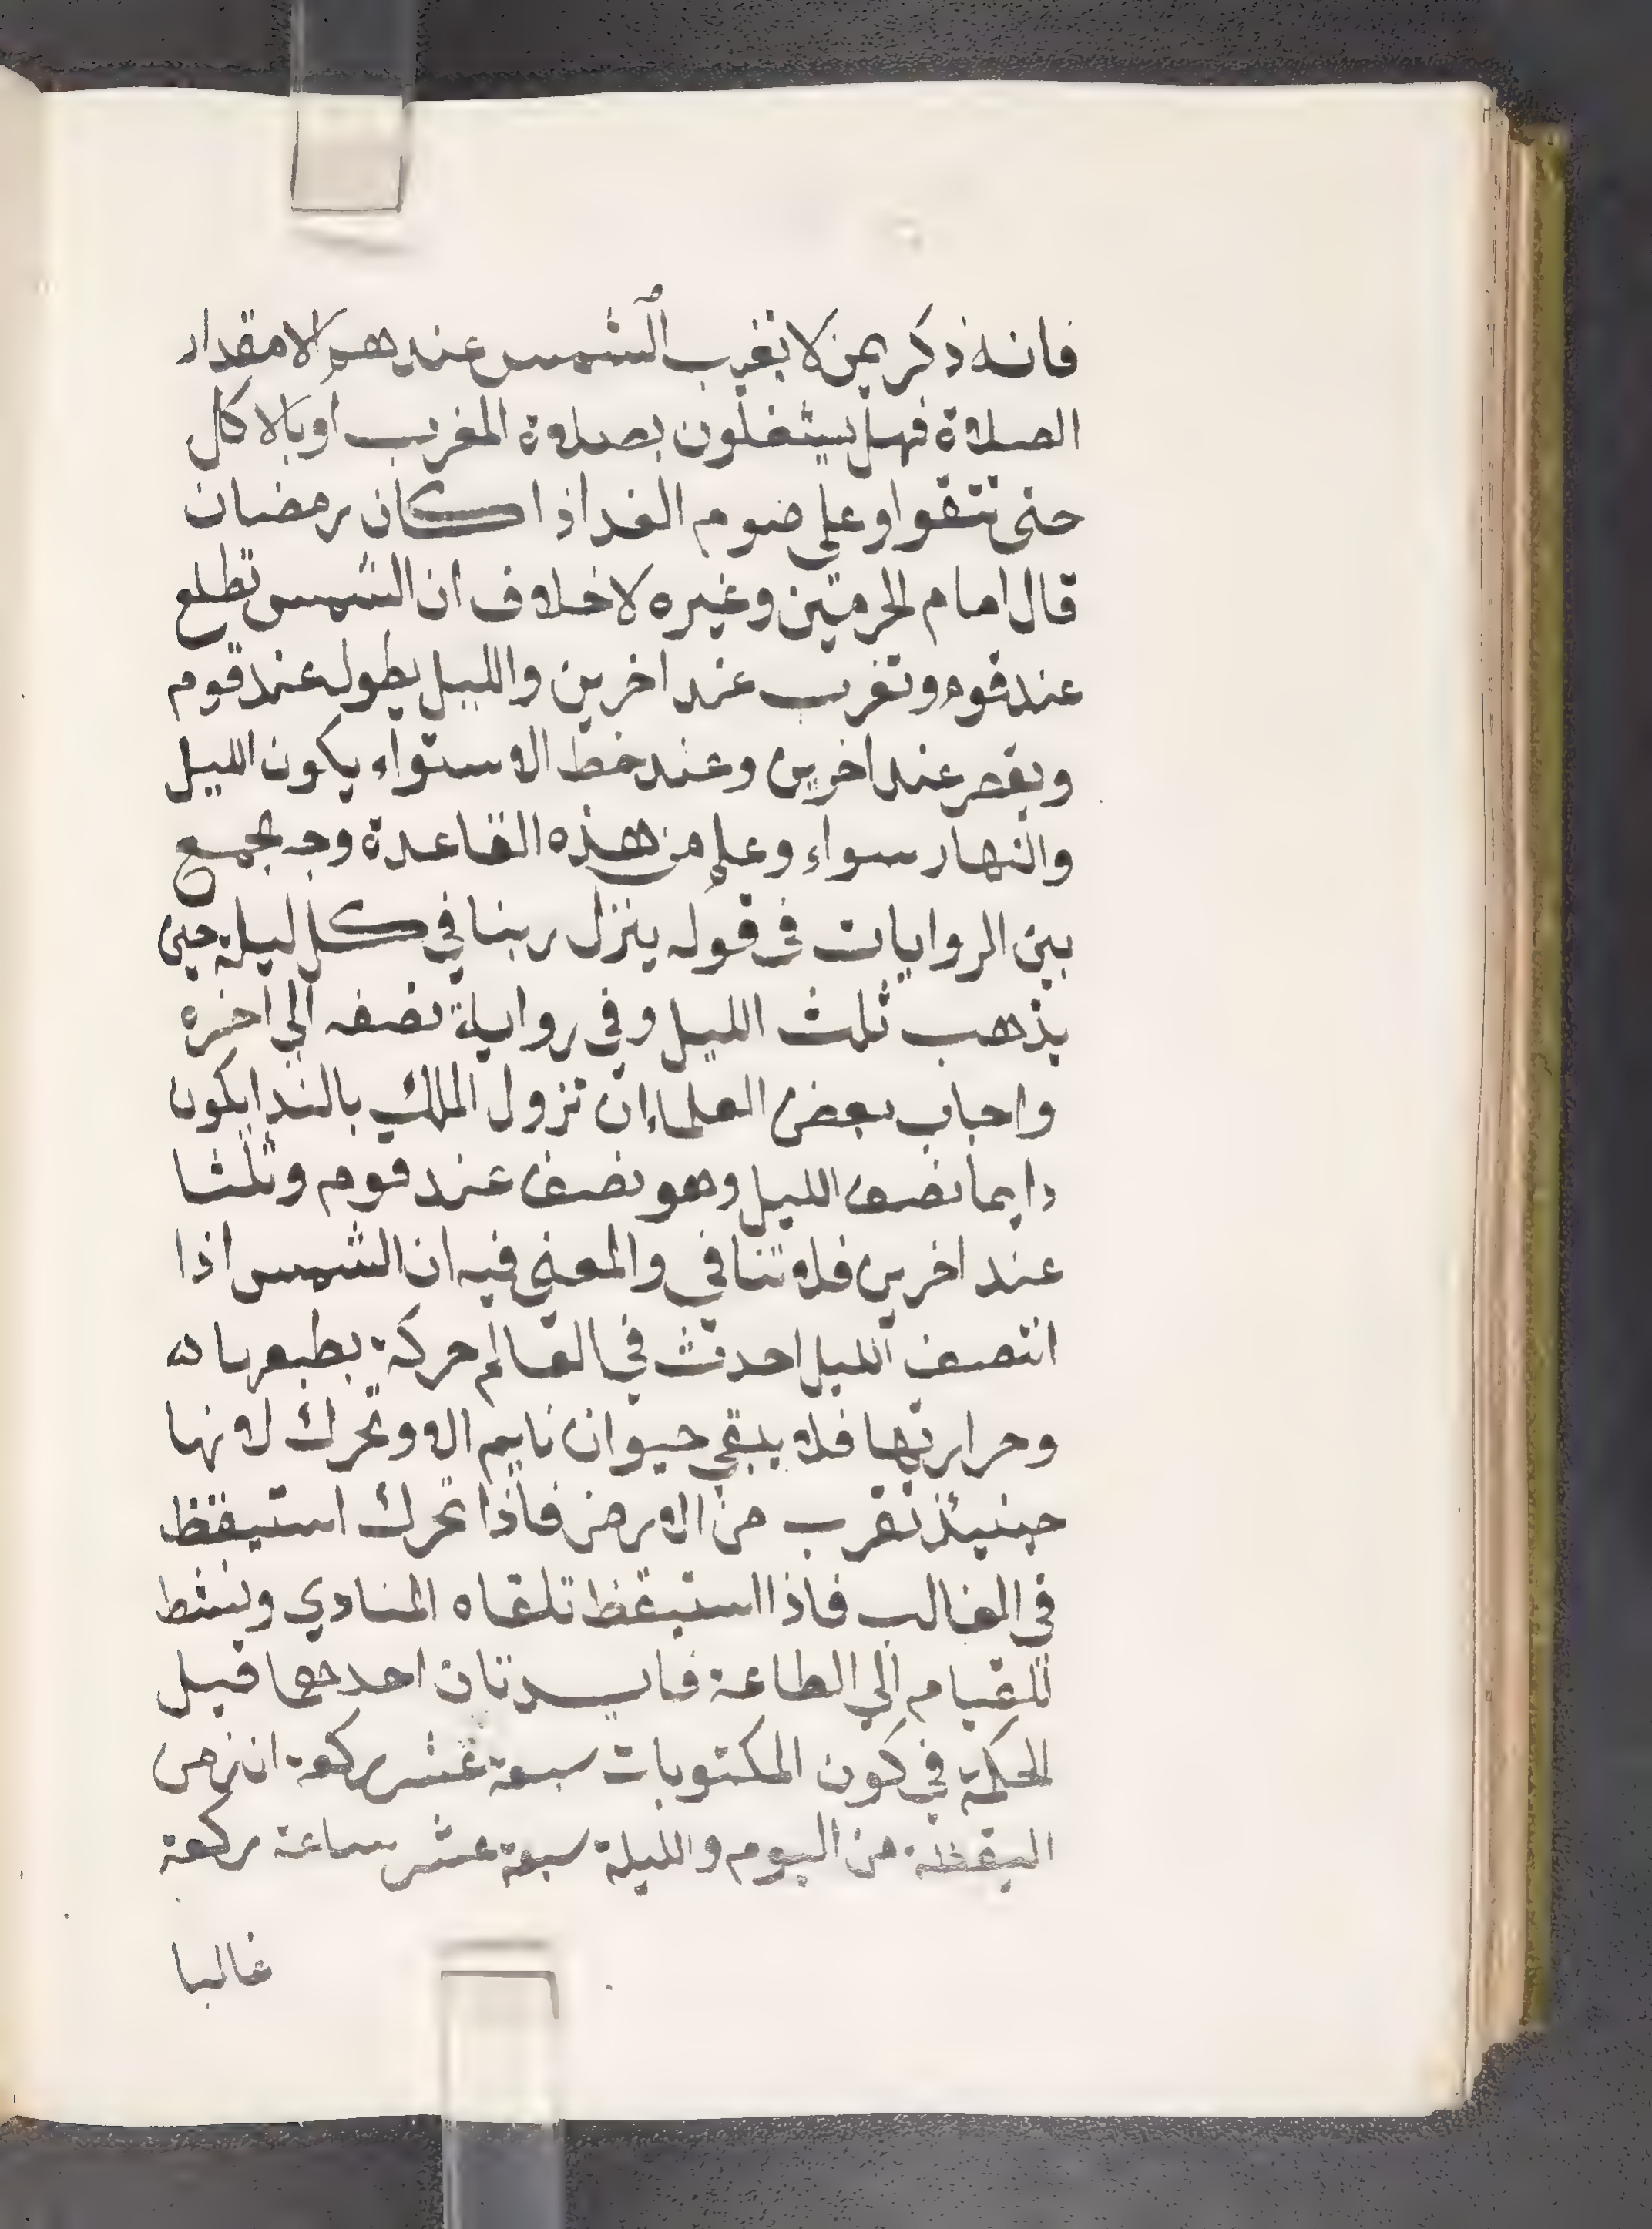 فانه ذكر يمن لا تغرب الشمس عندهم الا مقدار
الصلاة فهل يشتغلون بصلاة المغرب او بالاكل
حتى تتقوا وعلى صوم الغد اذا كان رمضان
قال امام الحرمين وغيره لا خلاف ان الشمس تطلع
عند قوم وتغرب عند اخرين والليل يطول عند قوم
ويقصر عند اخرين وعند خط الاستواء يكون الليل
والنهار سواء وعلم من هذه القاعدة وجه الجمع
بين الروايات فى قوله ينزل ربنا في كل ليلة حين
يذهب ثلث الليل وفي رواية نصفه الى اخره
واجاب بعض العلماء ان نزول الملك بالندا يكون
دايما نصف الليل وهو نصف عند قوم وثلثا
عند اخرين فلا تنافي والمعنى فيه ان الشمس اذا
انتصف الليل احدثت في العالم حركة بطبعها
وحرارتها فلا يبقى حيوان نايم الا وتحرك لانها
حينيئذ تقرب من الارض فاذا تحرك استيقظ
في الغالب فاذا استيقظ تلقاه المنادي وينشط
للقيام الى الطاعة فايدتان احدهما قيل
الحكمة في كون المكتوبات سبعة عشر ركعة ان زمن
اليقظة من اليوم والليلة سبعة عشر ساعة ركعة
غالبا